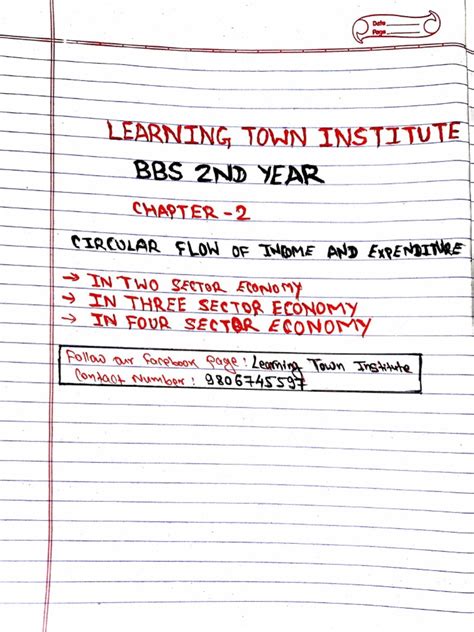 Date
Page
LEARNING TOWN INSTITUTE
BBS 2ND YEAR
CHAPTER - 2
CIRCULAR FLOW OF INCOME AND EXPENDITURE
→ IN TWO SECTOR ECONOMY
→ IN THREE SECTOR ECONOMY
→ IN FOUR SECTOR ECONOMY
Follow our facebook page : Learning Town Institute
Contact Number : 9806745597